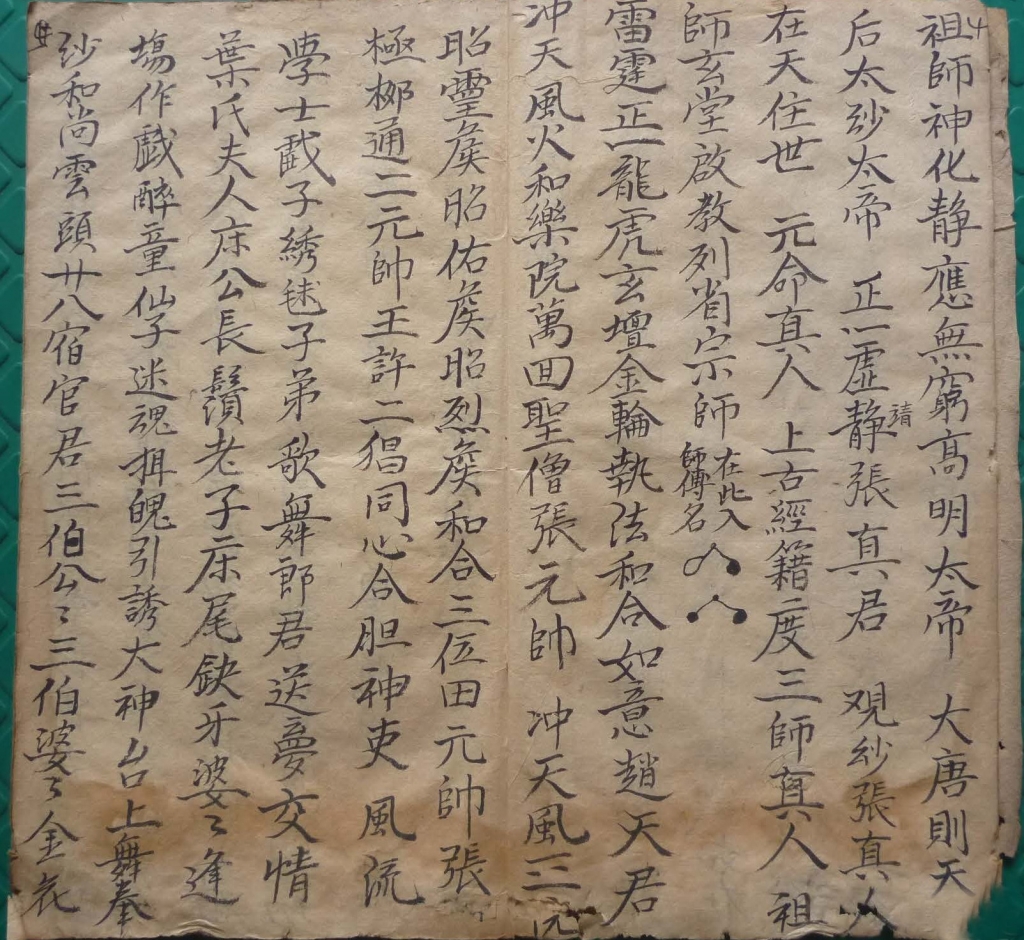 祖師神化静應無窮高明太帝　大唐則天
后太玅太帝　正一虛静張真君　观玅張真人
靖
在天住世　元命真人　上古經籍二度三師真人　祖
師玄堂啟教列省宗師
在此入
師傳名
雷霆正一龍虎玄壇金輪執法和合如意趙天君
冲天風火和樂院萬回聖僧張元帥　冲天風三
昭靈侯昭佑侯昭烈侯和合三位田元帥張
極柳通二元帥王許二猖同心合胆神吏　風流
學士戲子綉毬子弟歌舞郎君送夢交情
葉氏夫人床公長鬚老子床尾缺牙婆〻逢
塲作戲醉童仙子迷魂引誘大神台上舞奉
玅和尚雲頭廿八宿官君三伯公〻三伯婆〻金花